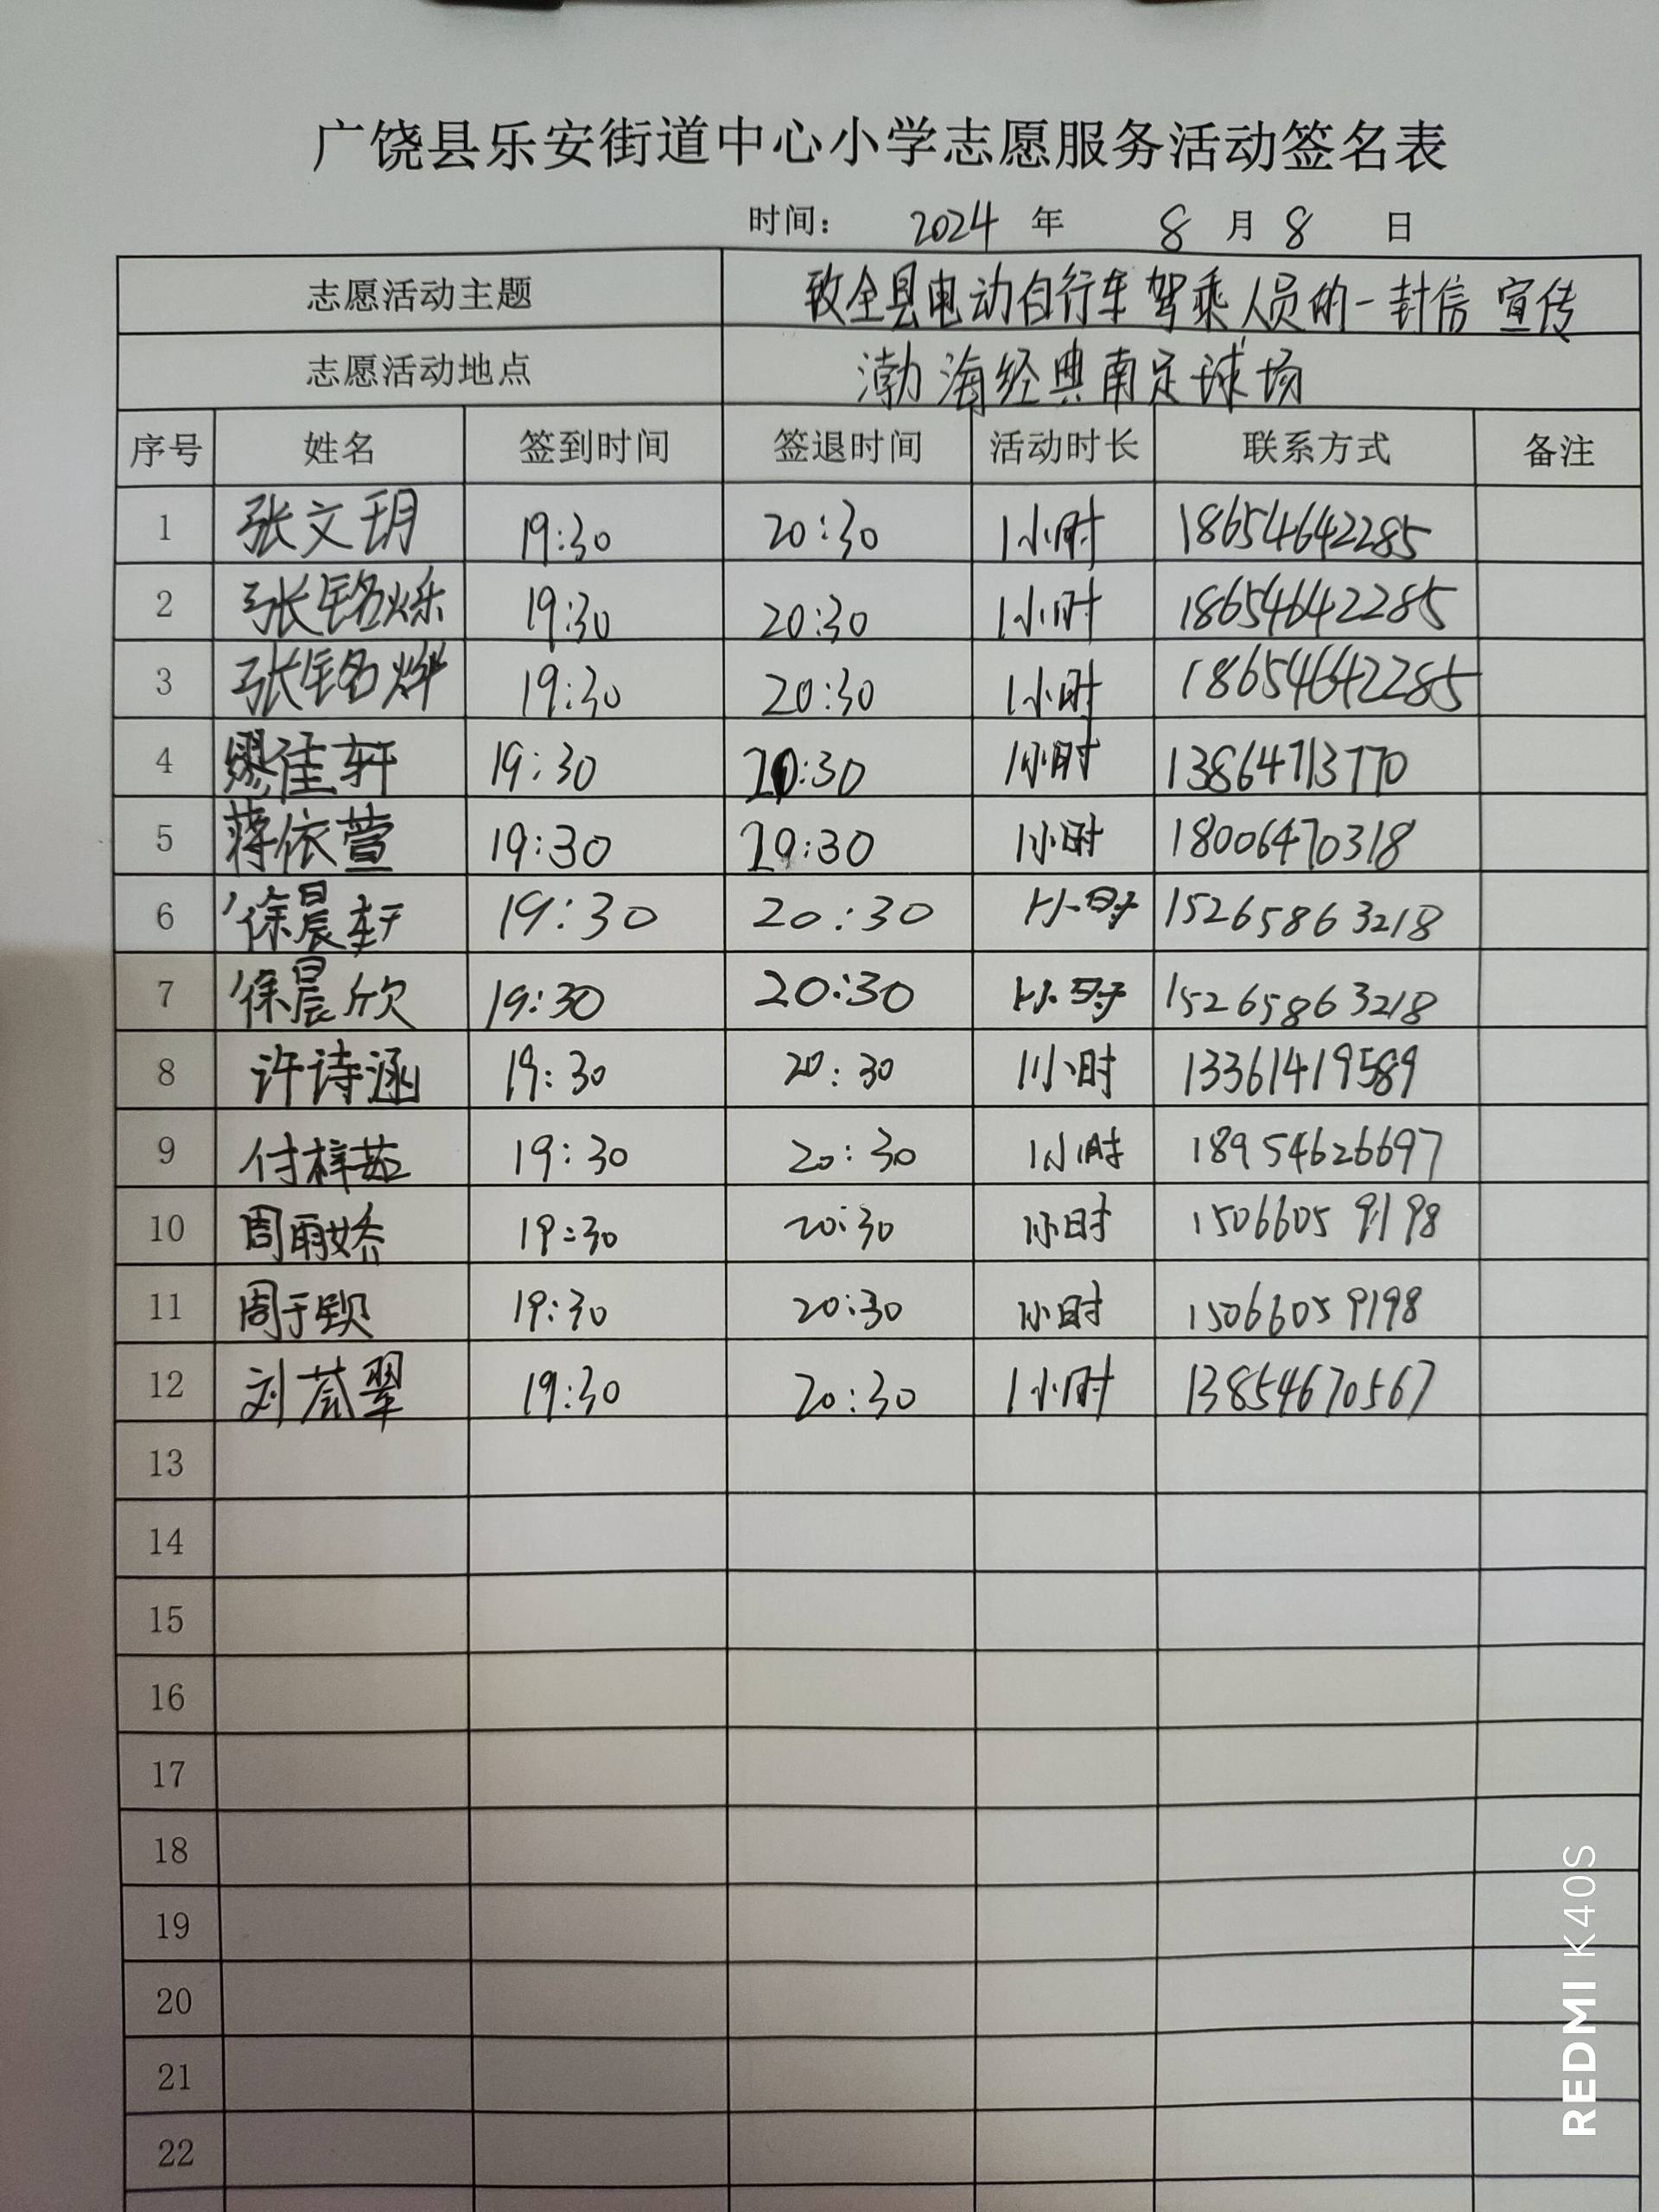 广饶县乐安街道中心小学志愿服务活动签名表
时间： 2024 年 8 月 8 日
志愿活动主题 致全县电动自行车驾乘人员的一封信 宣传
志愿活动地点 渤海经典南足球场
序号 姓名 签到时间 签退时间 活动时长 联系方式 备注
1 张文玥 19:30 20:30 1小时 18654642285
2 张铭烁 19:30 20:30 1小时 18654642285
3 张铭烨 19:30 20:30 1小时 18654642285
4 缪佳轩 19:30 20:30 1小时 13864713770
5 蒋依萱 19:30 :30 1小时 18006470318
6 徐晨轩 19:30 20:30 1小时 15265863218
7 徐晨欣 19:30 20:30 1小时 15265863218
8 许诗涵 19:30 20:30 1小时 13361419589
9 付梓茹 19:30 20:30 1小时 18954626697
10 周雨娇 19:30 20:30 1小时 15066059198
11 周于钡 19:30 20:30 1小时 15066059198
12 刘翠 19:30 20:30 1小时 13854670567
13
14
15
16
17
18
19
20
21
22
REDMI K40S